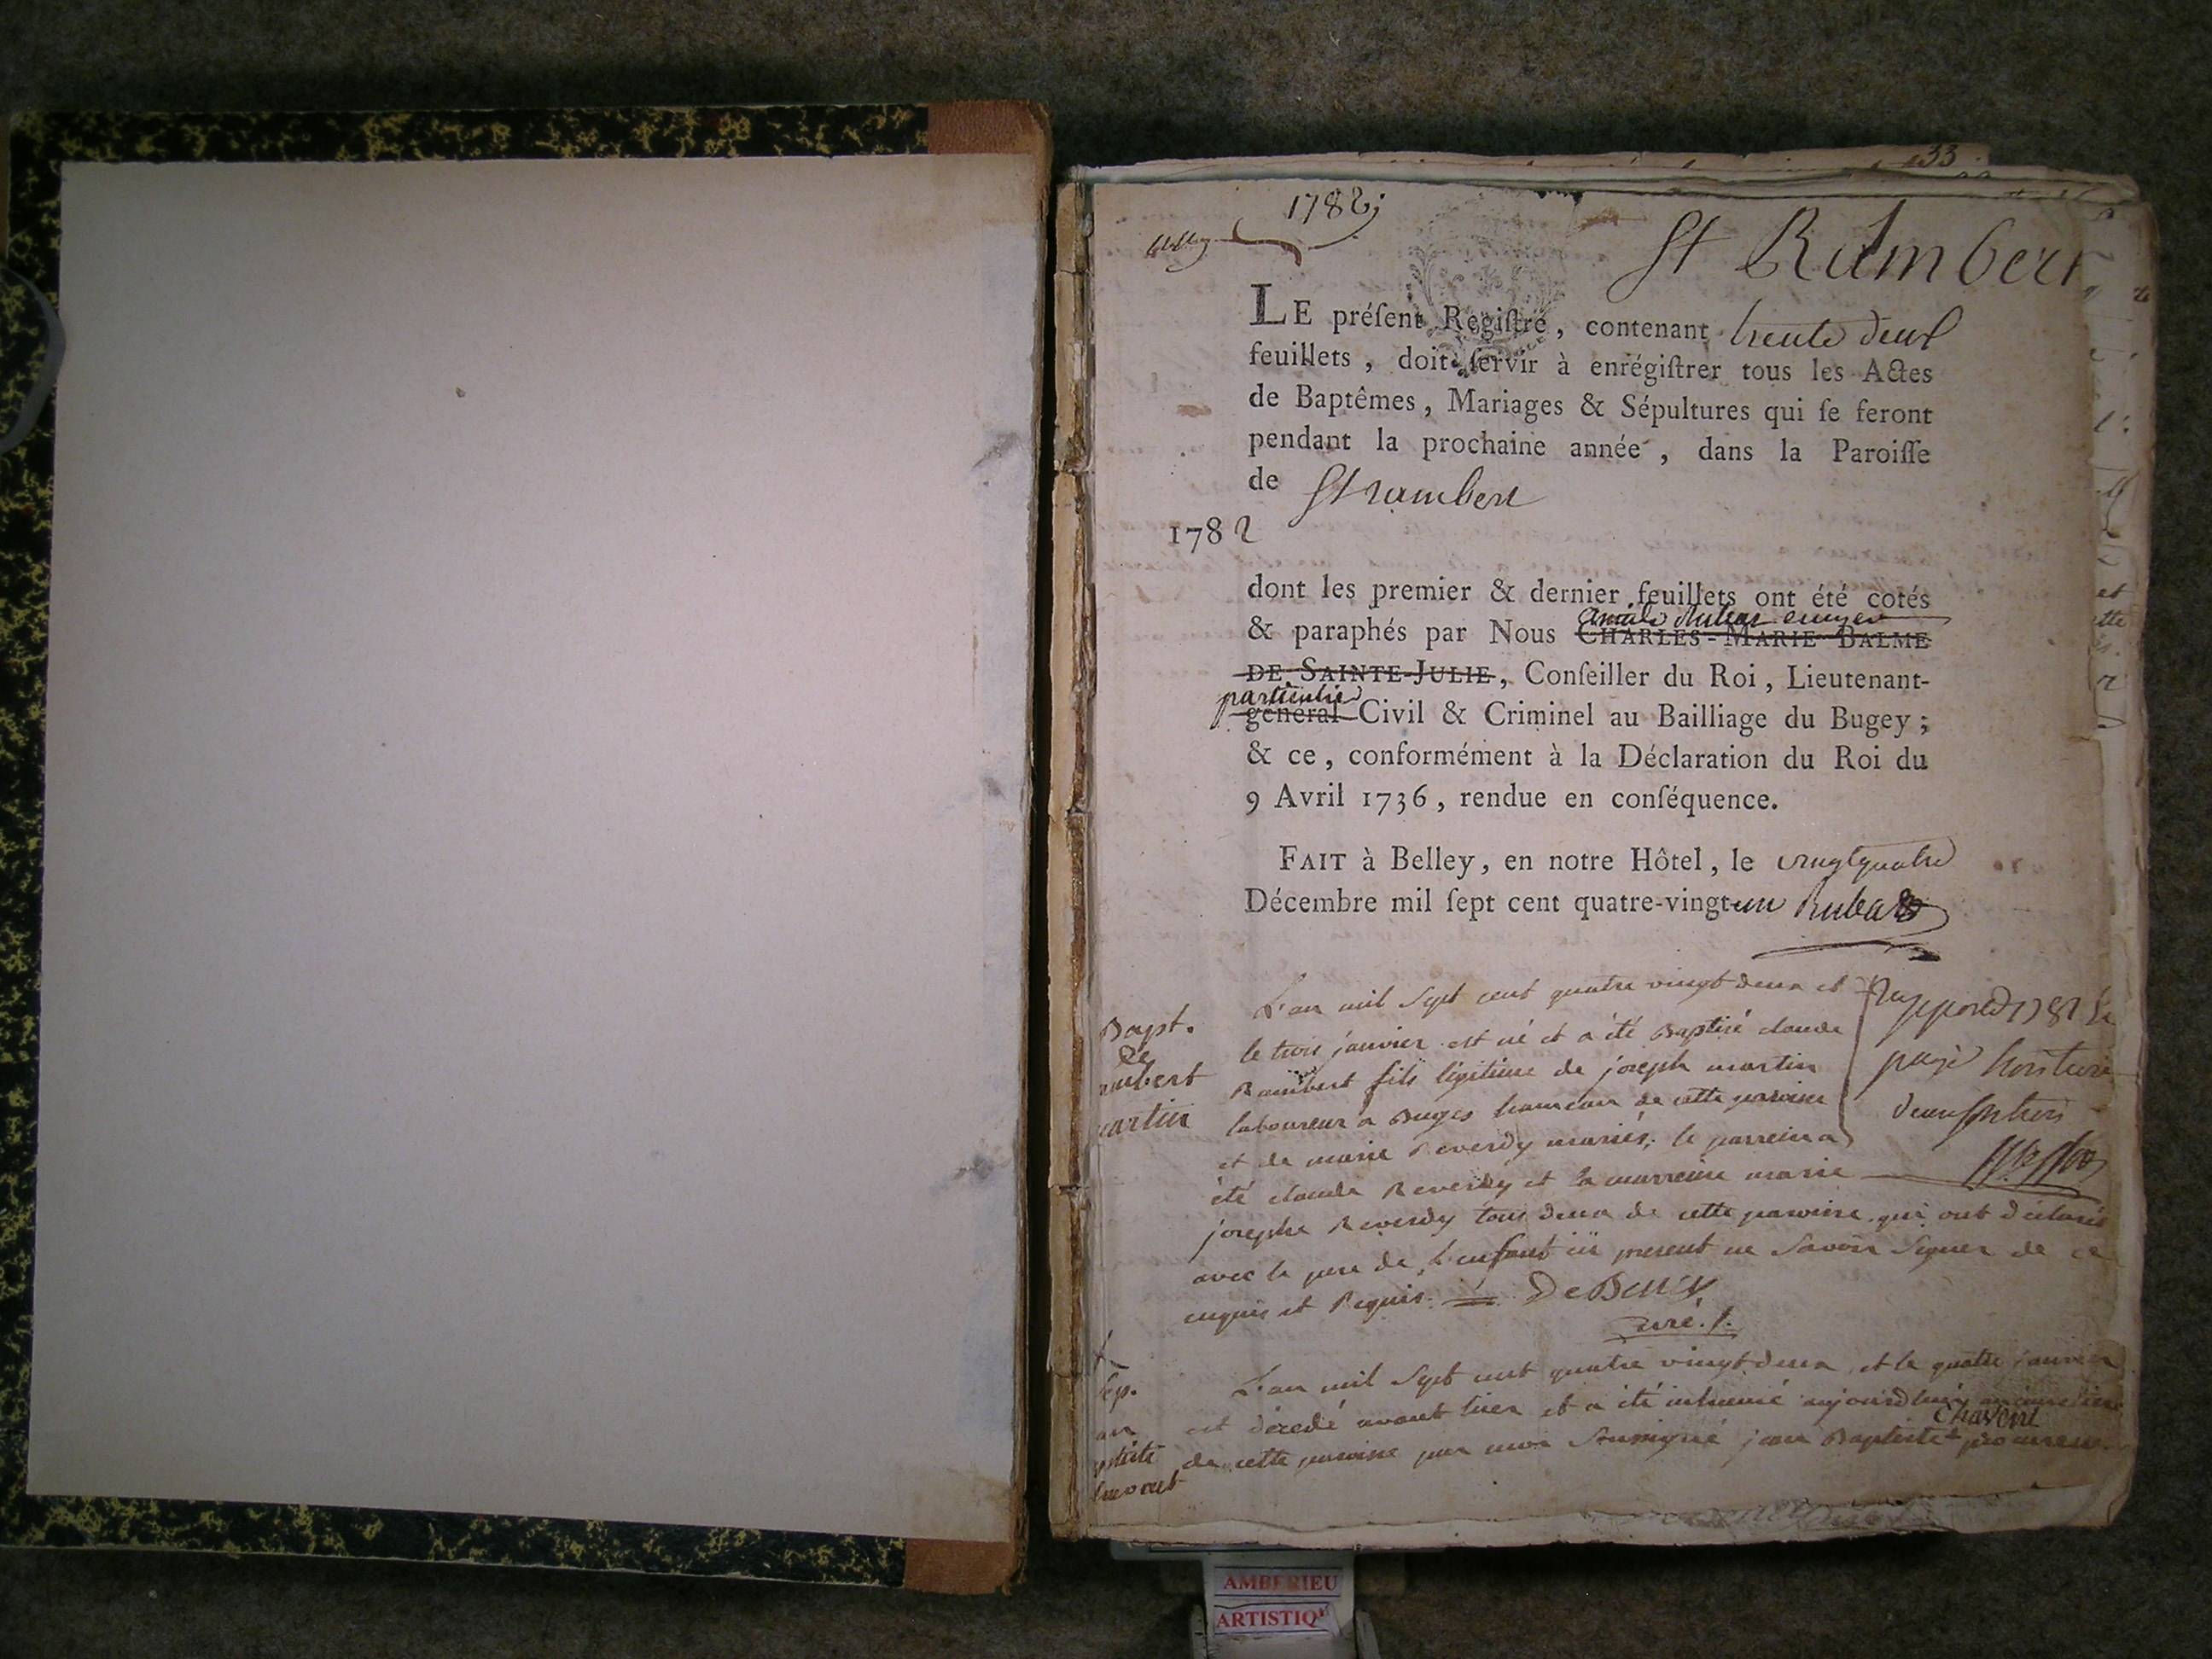 33
1782
St Rambert
LE préſent Regiſtre, contenant trente deux
feuillets, doit ſervir à enrégiſtrer tous les Actes
de Baptêmes, Mariages & Sépultures qui ſe feront
pendant la prochaine année, dans la Paroiſſe
de St rambert
1782
dont les premier & dernier feuillets ont été cotés
& paraphés par Nous CHARLES-MARIE BALME
DE SAINTE-JULIE, Conſeiller du Roi, Lieutenant-
particulier
général Civil & Criminel au Bailliage du Bugey;
& ce, conformément à la Déclaration du Roi du
9 Avril 1736, rendue en conſéquence.
FAIT à Belley, en notre Hôtel, le vingtquatre
Décembre mil ſept cent quatre-vingt-un
Bapt.
de
ambert
artin
L'an mil Sept cent quatre vingt deux et
le trois janvier est né et a été Baptisé claude
Rambert fils légitime de joseph martin
laboureur a Buges hameau de cette paroisse
et de marie Reverdy mariés; le parrein a
été claude Reverdy et la marreine marie
josephe Reverdy tous deux de cette paroisse qui ont déclaré
avec le pere de l'enfant ici present ne Savoir Signer de ce
enquis et Requis.
curé.
Sep.
L'an mil Sept cent quatre vingt deux et le quatre janvier
est décédé avant hier et a été inhumé aujourdhuy au cimetiere
Chavent
de cette paroisse par moi Soussigné jean Baptiste procureur
AMBERIEU
ARTISTIQ